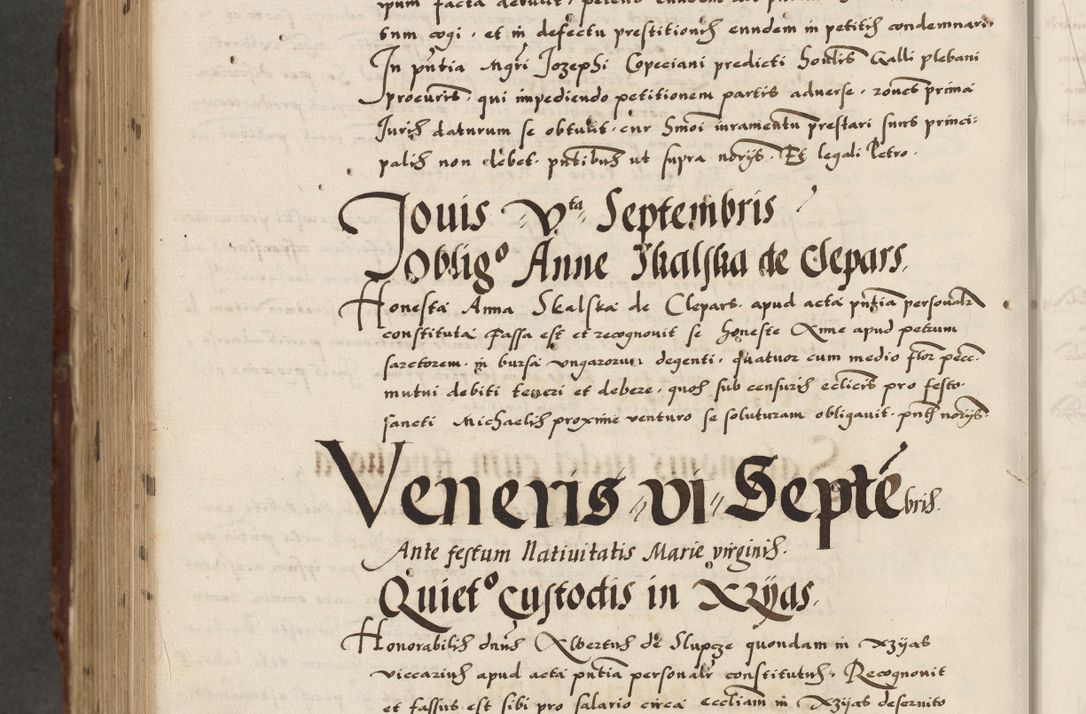 ipsum facta
tum cogi · et in defectu prestitionis eundem in petitis condemnari
In pñtia Mgri Jozephi Copeciani predicti Galli plebani
procuris · qui impediendo petitionem partis adverse · prima
Juris daturum se obtulit · cur iuramentũ prestari princi:
palis non debet · pñtibus ut supra norijs · Et legali Petro ·
Jouis vta Septembris
Obligo Anne Skalska de Clepars.
Honesta Anna Skalska de Clepars · apud acta pñtia personalr
constituta Fassa est et recognouit se honeste Anne apud petrum
sarctorem · in bursa ungarorum degenti · quatuor cum medio flor pecc
mutui debiti teneri et debere · quos sub censuris eclicis pro festo
sancti Michaelis proxime venturo se soluturam obligauit · pntb norijs ·
Veneris vi Septẽbris.
Ante festum Natiuitatis Marie virginis ·
Quieto custodis in Xzijas.
Honorabilis dnus Albertus de Slupcze quondam in Xzijas
viccarius apud acta pñtia personalr constitutus · Recognouit
et fassus est sibi pro salario circa eccliam in Xzijas deseruito